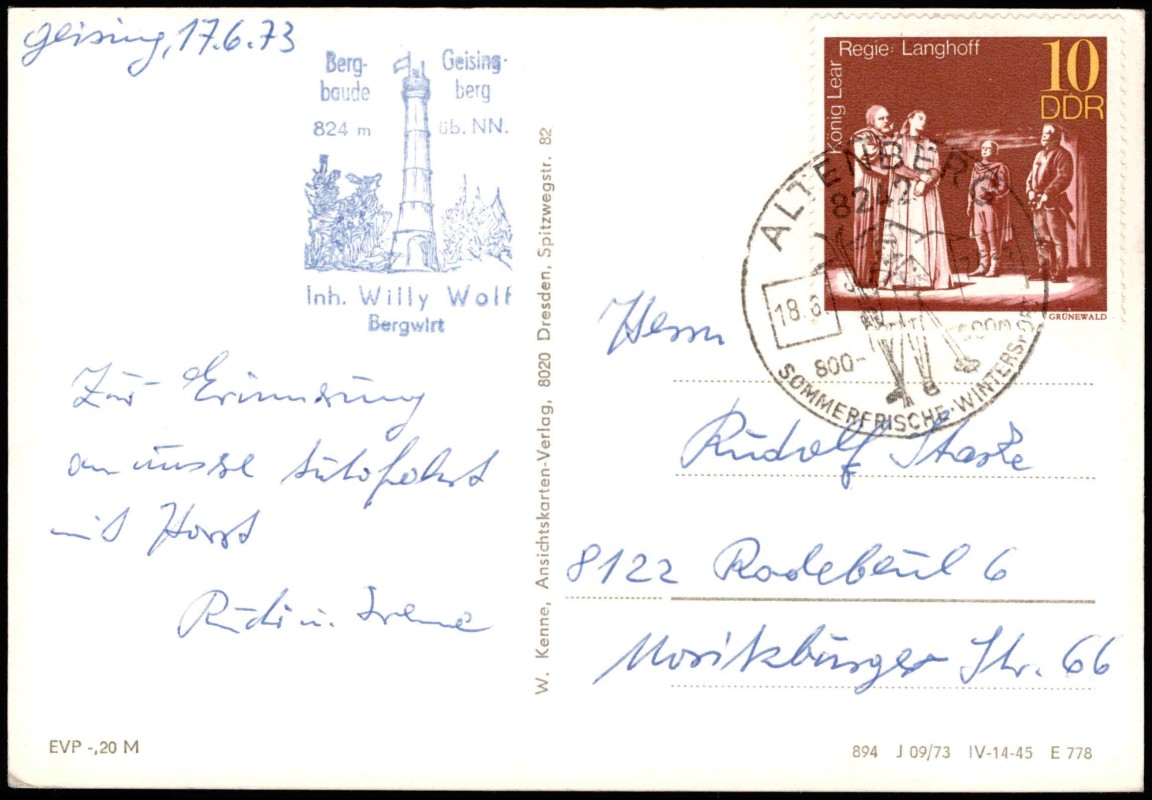 Geising, 17.6.73
Berg- Geising-
baude berg
824 m üb. NN.
Inh. Willy Wolf
Bergwirt
Zur Erinnerung
an unsre Autofahrt
mit Horst
Rudi u. Irene
W. Kenne, Ansichtskarten-Verlag, 8020 Dresden, Spitzwegstr. 82
König Lear
Regie: Langhoff
10
DDR
GRÜNEWALD
ALTENBERG
8242
18.6.
800-
SOMMERFRISCHE·WINTERSPORT
Herrn
Rudolf Starke
8122 Radebeul 6
Moritzburger Str. 66
EVP -,20 M
894 J 09/73 IV-14-45 E 778